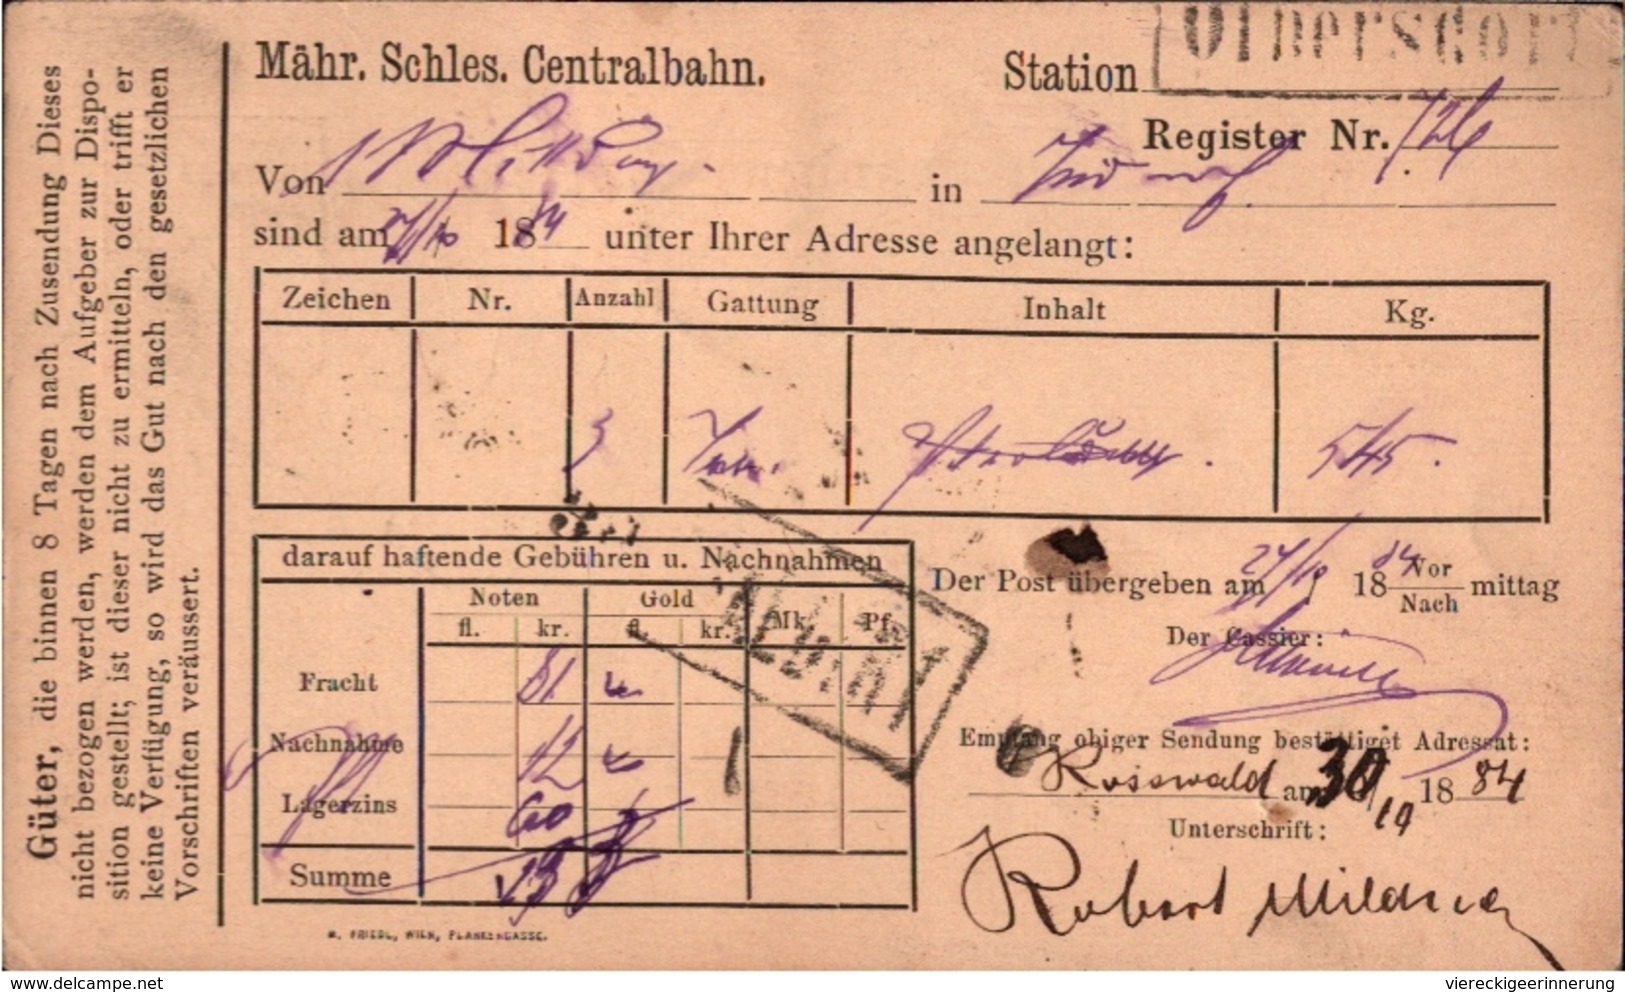 Güter, die binnen 8 Tagen nach Zusendung Dieses
nicht bezogen werden, werden dem Aufgeber zur Dispo-
sition gestellt; ist dieser nicht zu ermitteln, oder trifft er
keine Verfügung, so wird das Gut nach den gesetzlichen
Vorschriften veräussert.
Mähr. Schles. Centralbahn.
Station Olbersdorf
Register Nr. 126
Von in
sind am 27/10 1884 unter Ihrer Adresse angelangt:
Zeichen Nr. Anzahl Gattung Inhalt Kg.
3 545.
darauf haftende Gebühren u. Nachnahmen
Noten Gold Mk. Pf.
fl. kr. fl. kr.
Fracht 81
Nachnahme 12
Lagerzins 60
Summe
M. FRIEDL, WIEN, PLANKENGASSE.
Der Post übergeben am 27/10 1884 Vor/Nach mittag
Der Cassier:
Empfang obiger Sendung bestättiget Adressat:
Rosswald am 30/10 1884
Unterschrift:
Robert
viereckigeerinnerung
www.delcampe.net